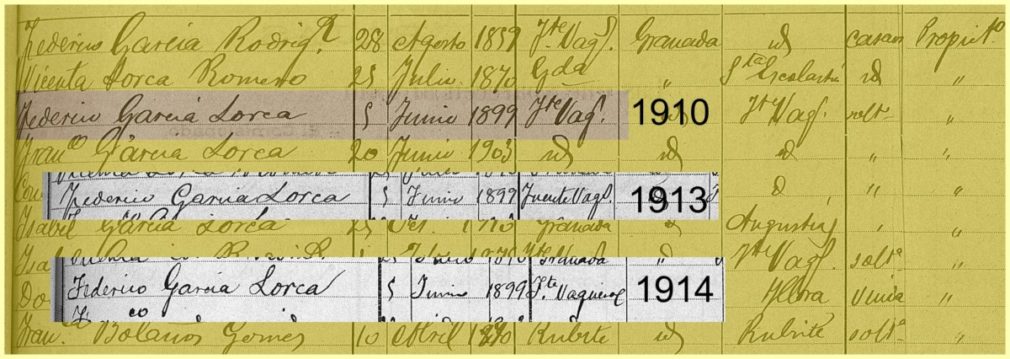 Federico Garcia Rodrigz 28 Agosto 1859 Fte Vaqs. Granada id casado Propieto
Vicenta Lorca Romero 25 Julio 1870 Gda " Sta Escolastica id "
Federico Garcia Lorca 5 Junio 1899 Fte Vaqs. 1910 Fte Vaqs. solto "
Franco Garcia Lorca 20 Junio 1903 id id id " "
Federico Garcia Lorca 5 Junio 1899 Fuente Vaqs. 1913 " "
Isabel Garcia Lorca Granada Augustias " "
Fte Vaqs. solta "
Federico Garcia Lorca 5 Junio 1899 Fte Vaqueros 1914 Illora Viuda "
Franco
Fran. Bolaños Gomez 10 Abril Rubite id Rubite solta "